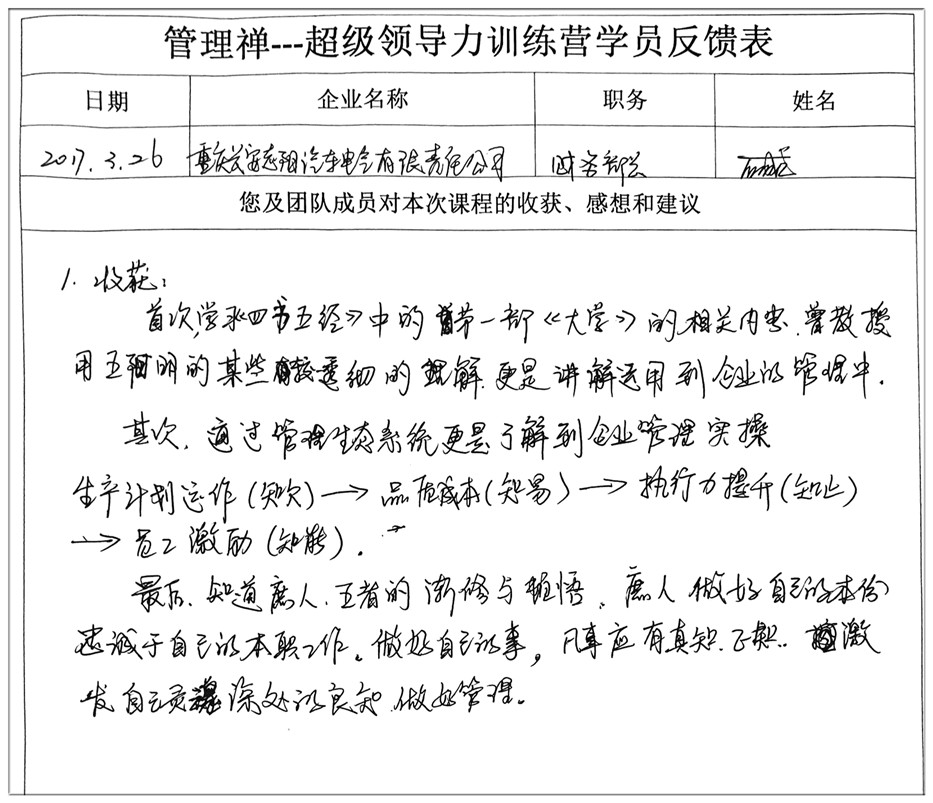 管理禅---超级领导力训练营学员反馈表
日期 企业名称 职务 姓名
2017.3.26 重庆长安志阳汽车电气有限责任公司 财务部长
您及团队成员对本次课程的收获、感想和建议
1. 收获：
首次学习《四书五经》中的第一部《大学》的相关内容，曾教授
用王阳明的某些较透细的理解，更是讲解运用到企业的管理中.
其次，通过管理生态系统更是了解到企业管理实操
生产计划运作(知次)→品质成本(知易)→执行力提升(知止)
→员工激励(知能).
最后，知道庶人、王者的渐修与顿悟、庶人做好自己的本份
忠诚于自己的本职工作。做好自己的事，凡事应有真知. 激
发自己灵魂深处的良知，做好管理。